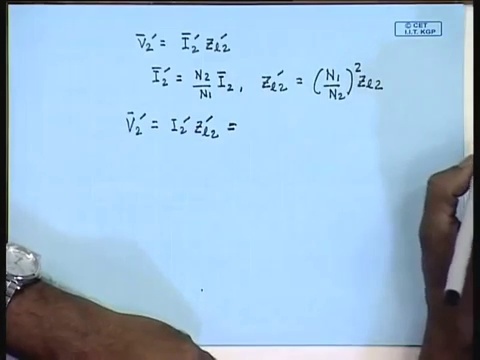 © CET
I.I.T. KGP
V̄₂′ = Ī₂′ Z_ℓ₂′
Ī₂′ = N₂/N₁ Ī₂, Z_ℓ₂′ = (N₁/N₂)² Z_ℓ₂
V̄₂′ = I₂′ Z_ℓ₂′ =